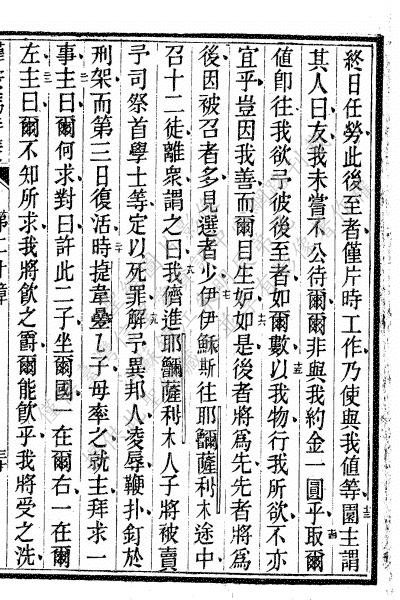 終日任勞此後至者僅片時工作乃使與我値等園主謂
其人曰友我未嘗不公待爾爾非與我約金一圓乎取爾
値卽往我欲予彼後至者如爾數以我物行我所欲不亦
宜乎豈因我善而爾目生妒如是後者將爲先先者將爲
後因被召者多見選者少伊伊穌斯往耶穪薩利木途中
召十二徒離衆謂之曰我儕進耶穪薩利木人子將被賣
予司祭首學士等定以死罪解予異邦人凌辱鞭扑釘於
刑架而第三日復活時捷韋壘乚子母率之就主拜求一
事主曰爾何求對曰許此二子坐爾國一在爾右一在爾
左主曰爾不知所求我將飮之爵爾能飮乎我將受之洗
第二十章